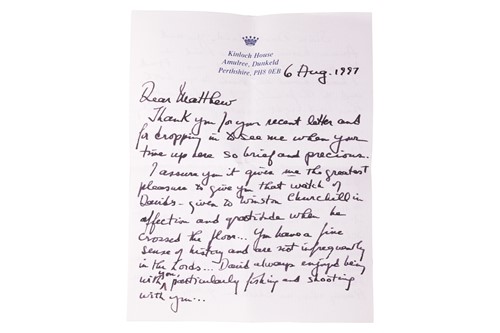 Kinloch House
Amulree, Dunkeld
Perthshire, PH8 0EB
6 Aug. 1997
Dear Matthew
Thank you for your recent letter and
for dropping in to see me when your
time up here so brief and precious.
I assure you it gives me the greatest
pleasure to give you that watch of
Davids - given to Winston Churchill in
affection and gratitude when he
crossed the floor... You have a fine
sense of history and are not infrequently
in the Lords... David always enjoyed being
with you, particularly fishing and shooting
with you...